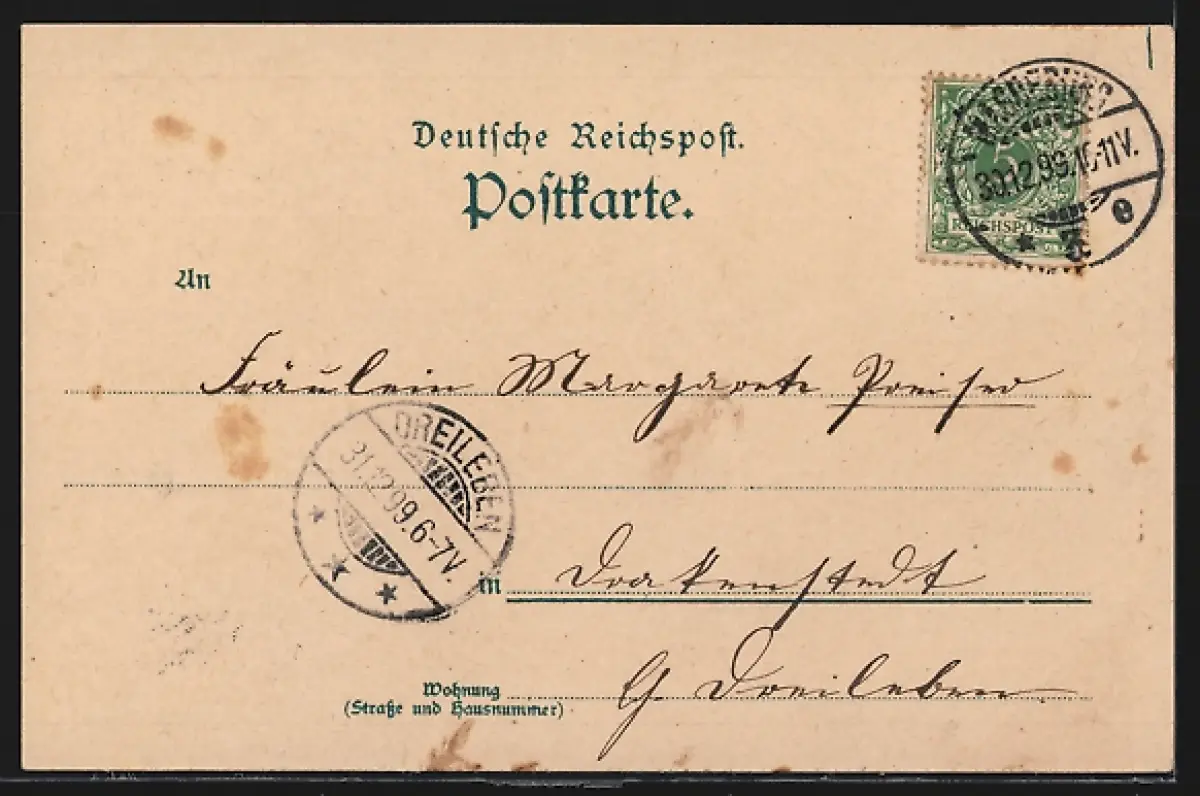 Deutsche Reichspost.
Postkarte.
MAGDEBURG
30.12.99.10-11V.
* 3. e
5
REICHSPOST
An
Fräulein Margarete Preiser
DREILEBEN
31.12.99.6-7V.
* * *
in Drakenstedt
Wohnung
(Straße und Hausnummer)
b/ Dreileben